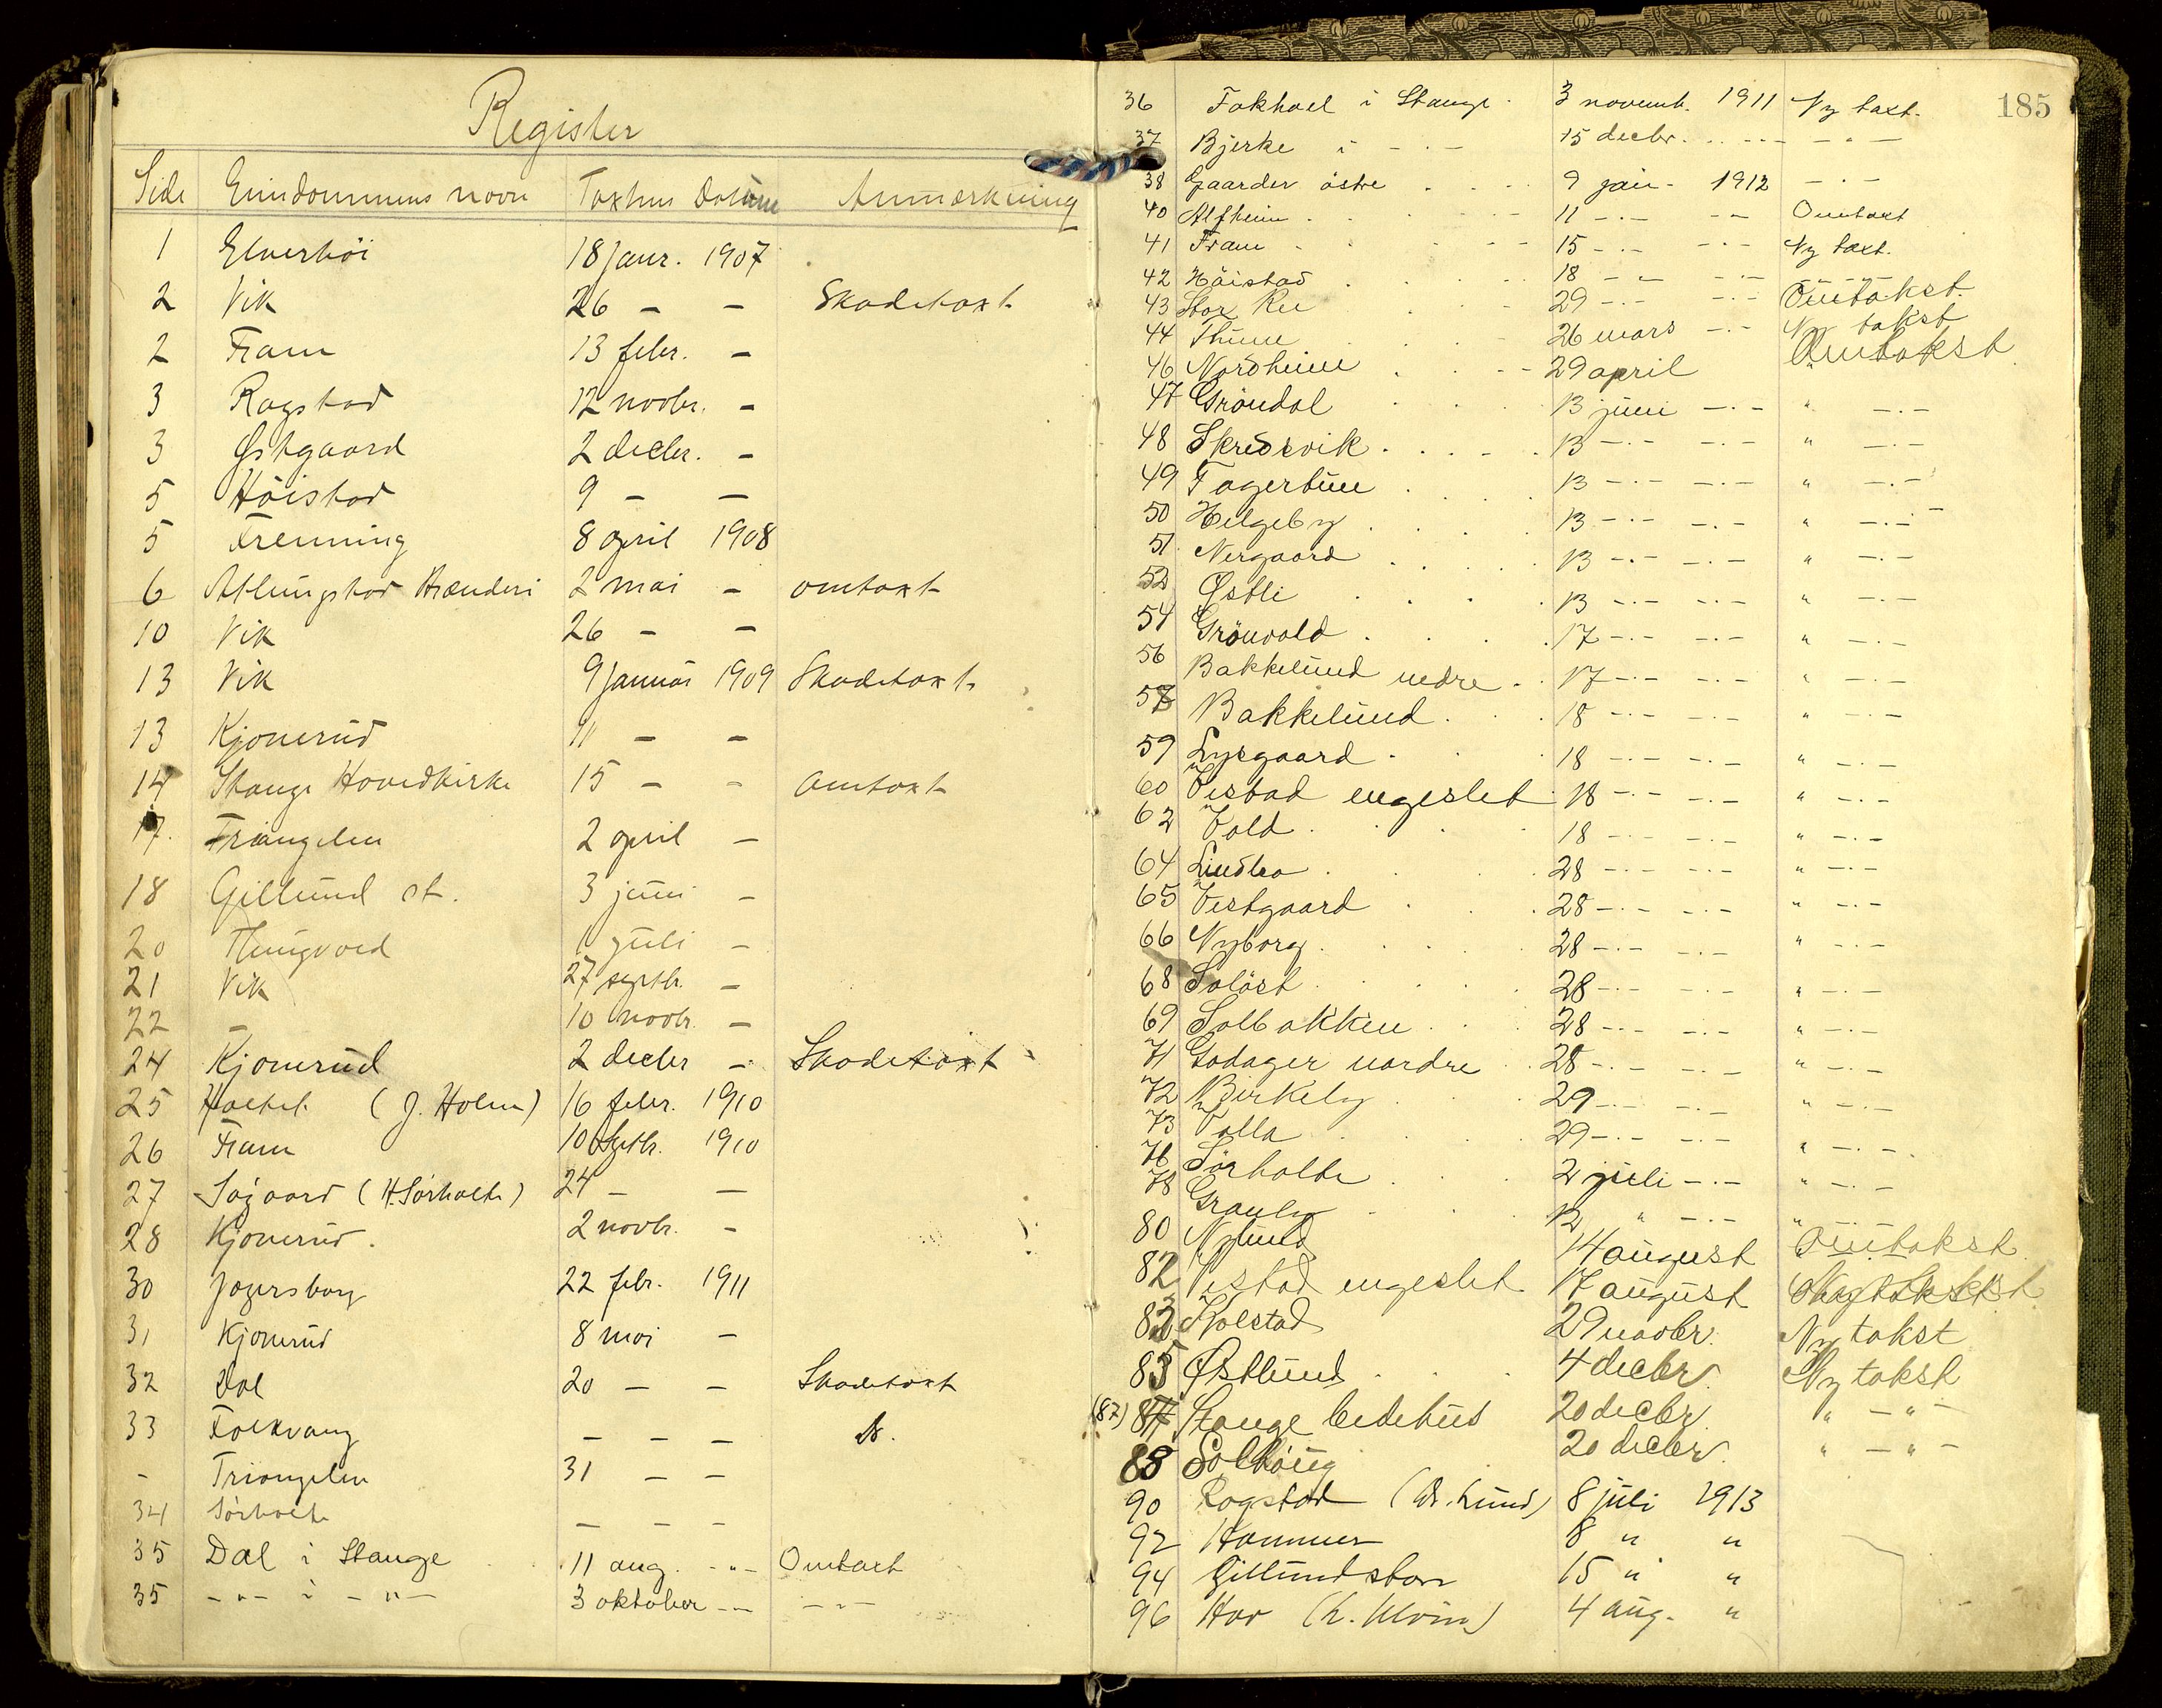 Register
Side Eiendommens navn Taxtens Datum Anmærkning
1 Elverhöi 18 Janr. 1907
2 Vik 26 – – Skadetaxt
2 Fram 13 febr. –
3 Rogstad 12 novbr. –
3 Østgaard 2 decbr. –
5 Höistad 9 – –
5 Frenning 8 april 1908
6 Atlungstad Brænderi 2 mai – omtaxt
10 Vik 26 – –
13 Vik 9 Januar 1909 Skadetaxt
13 Kjonerud 11 – –
14 Stange Hovedkirke 15 – – omtaxt
17. Triangelen 2 april –
18 Gillund st. 3 juni –
20 Thingvold 1 juli –
21 Vik 27 septbr. –
22 – 10 novbr. –
24 Kjonerud 2 decbr – Skadetaxt
25 (J. Holm) 16 febr. 1910
26 Fram 10 Septbr. 1910
27 Søgaard (H. Sörholte) 24 – –
28 Kjonerud. 2 novbr. –
30 Jægersborg 22 febr. 1911
31 Kjonerud 8 mai –
32 Dal 20 – – Skadetaxt
33 Folkvang – – –
– Triangelen 31 – –
34 Sörholte – – –
35 Dal i Stange 11 aug. -"- Omtaxt
35 -"- i -"- 3 oktober -"- -"-
185
36 Fokhoel i Stange. 3 novemb. 1911 Ny taxt.
37 Bjerke i -"- 15 decbr. -"- -"-
38 Gaarder östre 9 jan. 1912 -"-
40 Alfheim 11 -"- -"- Omtaxt
41 Fram 15 -"- -"- Ny taxt.
42 Höistad 18 -"- -"- -"-
43 Stor Ree 29 -"- -"- Omtakst.
44 Thune 26 mars -"- Ny takst
46 Nordheim 29 april Omtakst
47 Gröndal 13 juni -"- " -"-
48 Skredsvik 13 -"- -"- " -"-
49 Fagertun 13 -"- -"- " -"-
50 Helgeby 13 -"- -"- " -"-
51 Nergaard 13 -"- -"- " -"-
52 Østli 13 -"- -"- " -"-
54 Grönvold 17 -"- -"- " -"-
56 Bakkelund nedre 17 -"- -"- " -"-
57 Bakkelund 18 -"- -"- " -"-
59 Lysgaard 18 -"- -"- " -"-
60 Vestad engeslet 18 -"- -"- " -"-
62 Vold 18 -"- -"- " -"-
64 Lindlea 28 -"- -"- " -"-
65 Vestgaard 28 -"- -"- " -"-
66 Nyborg 28 -"- -"- " -"-
68 Soløst 28 -"- -"- " -"-
69 Solbakken 28 -"- -"- " -"-
71 Godager nordre 28 -"- -"- " -"-
72 Birkely 29 -"- -"- " -"-
73 Valla 29 -"- -"- " -"-
76 Sörholte 2 juli -"- " -"-
78 Granly 12 " -"- " -"-
80 Nylund 14 august Omtakst
82 Vestad engeslet 17 august
83 Kolstad 29 novbr. Ny takst
85 Østlund 4 decbr Ny takst
(87) 87 Stange bedehus 20 decbr " -"-
88 Solhöug 20 decbr. " -"-
90 Rogstad (Chr. Lund) 8 juli 1913
92 Hammer 8 " "
94 Gillundstorn 15 " "
96 Hov (L. Ulvin) 4 aug. "